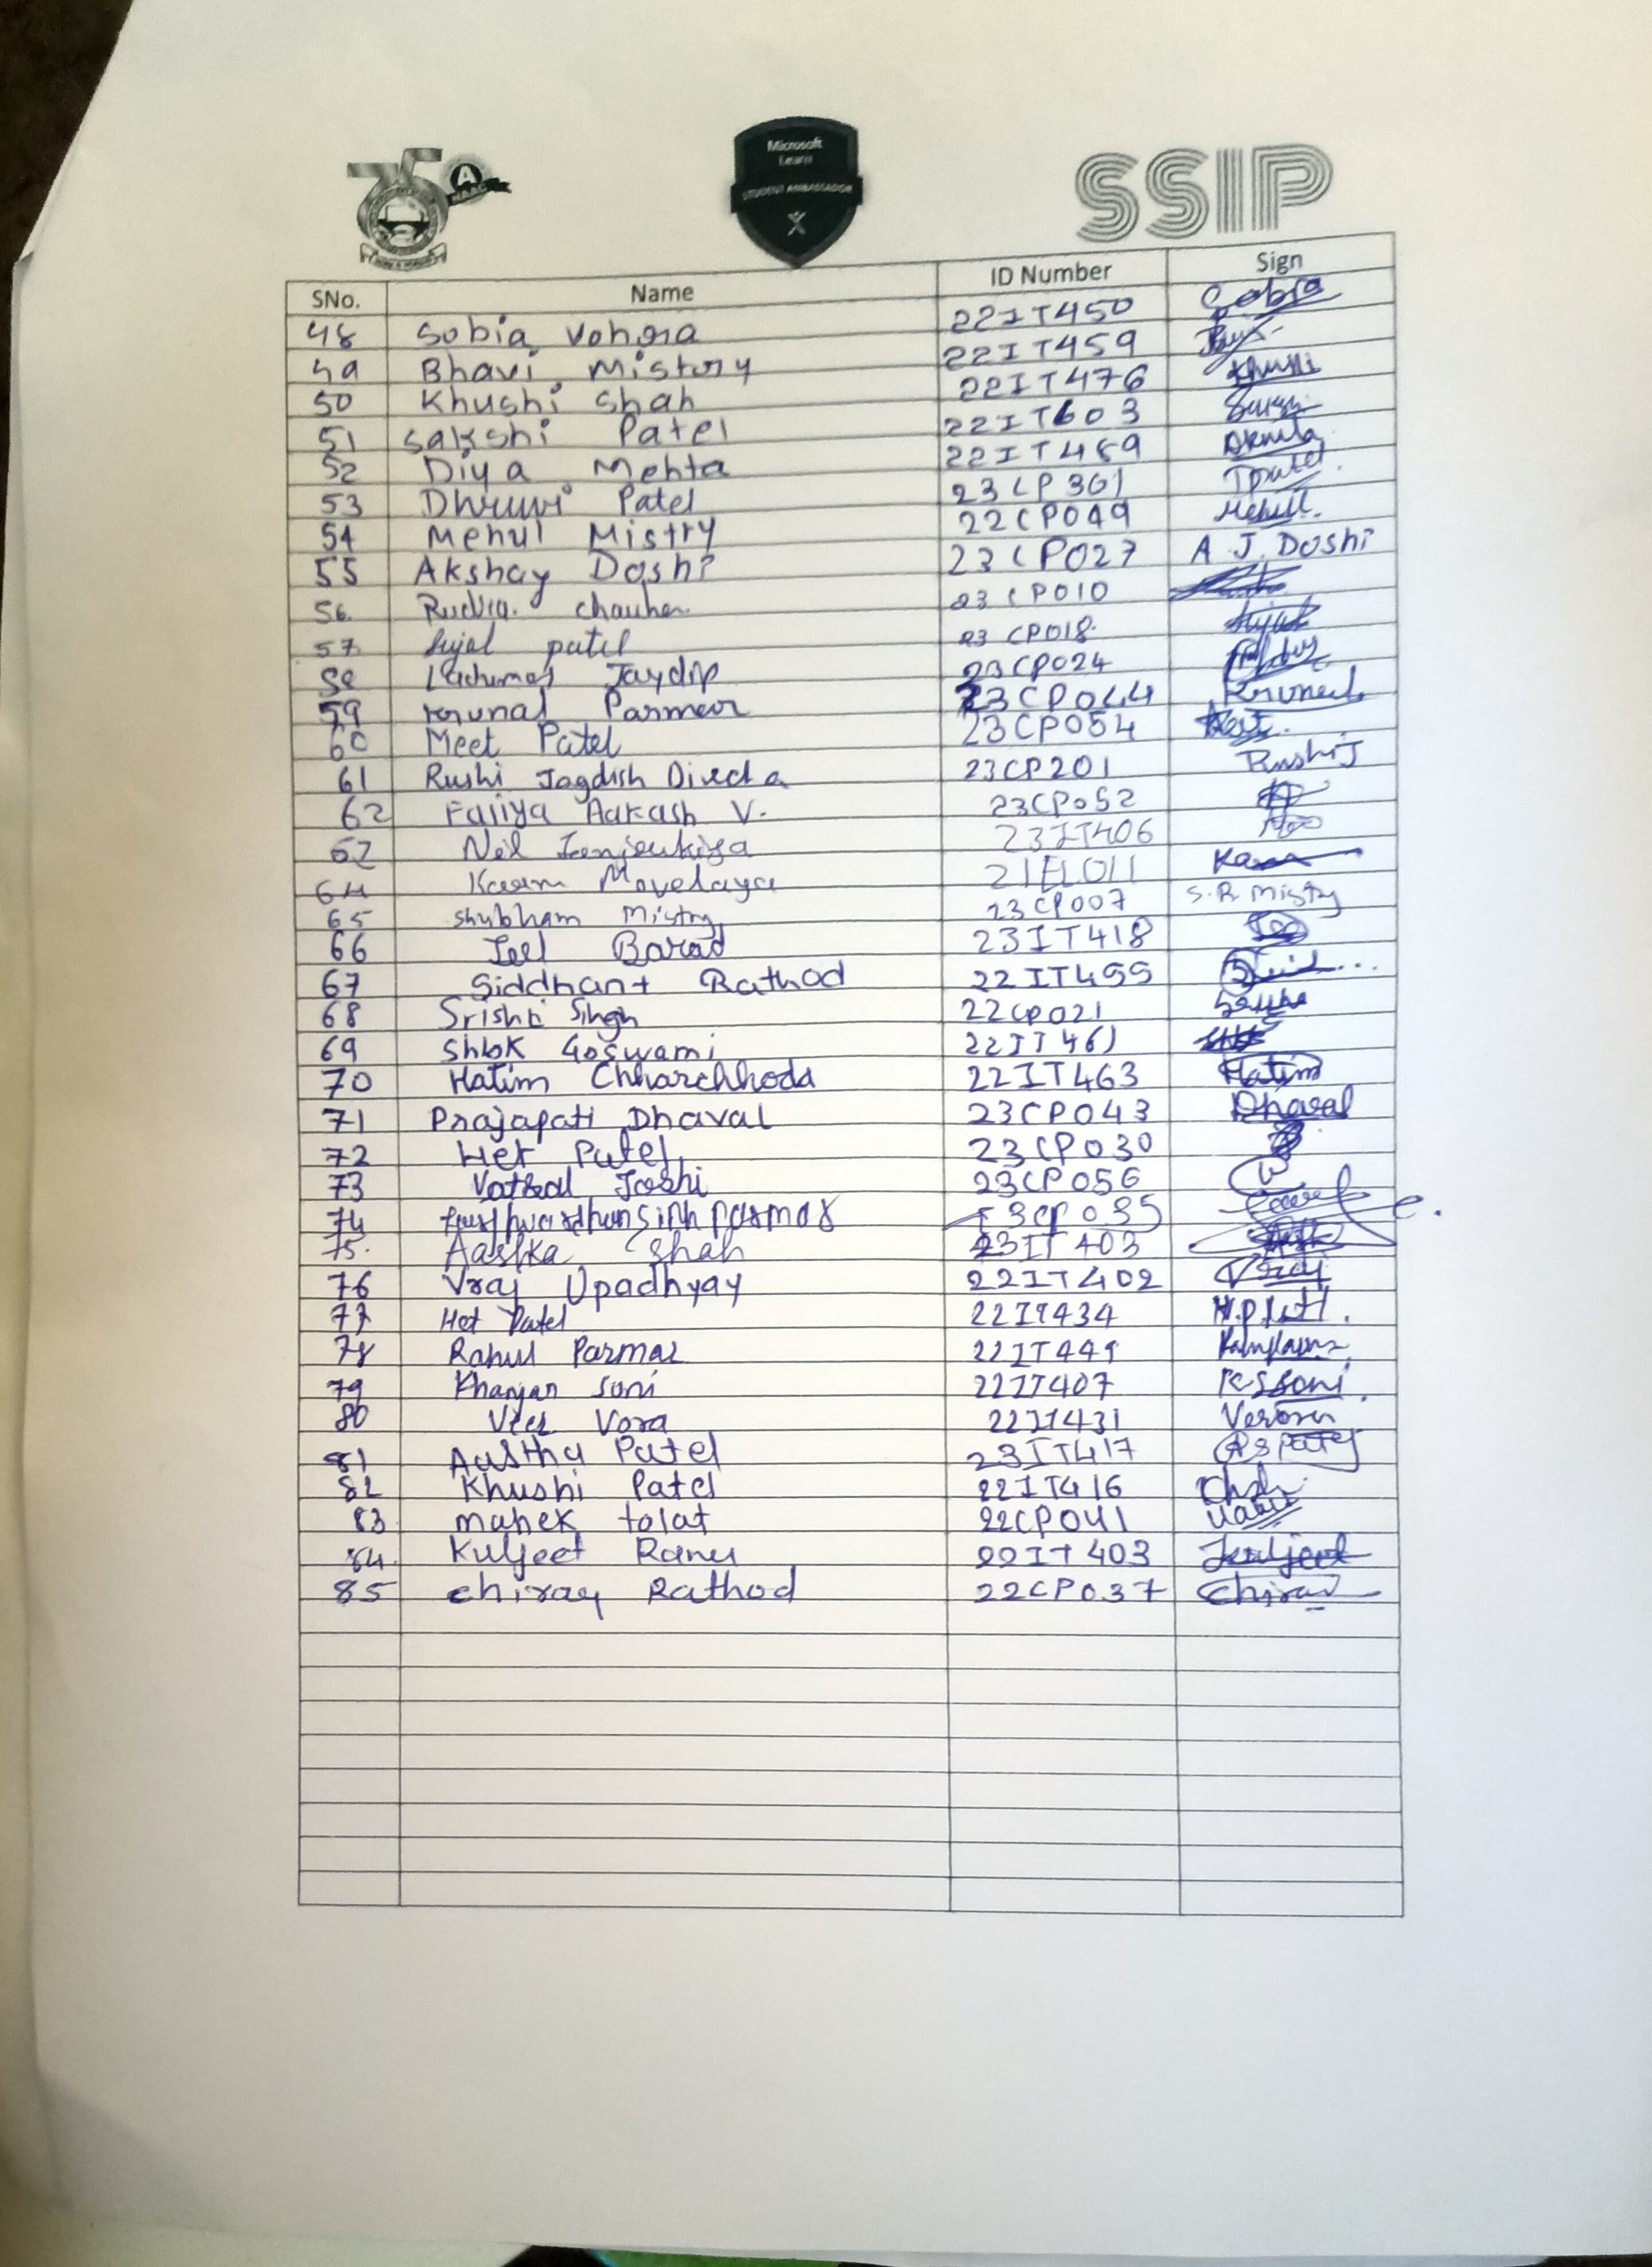 75 A NAAC
Microsoft
Learn
STUDENT AMBASSADOR
SSIP
SNo. Name ID Number Sign
48 Sobia Vohra 22IT450 Sobia
49 Bhavi Mistry 22IT459
50 Khushi Shah 22IT476 Khushi
51 Sakshi Patel 22IT603
52 Diya Mehta 22IT489
53 Dhruvi Patel 23CP301 Dpatel
54 Mehul Mistry 22CP049 Mehul
55 Akshay Doshi 23CP027 A J. Doshi
56. Rudra. Chauhan 23CP010
57. Sujal patel 23 CP018 Sujal
58 Jaydip 23CP024
59 Krunal Parmar 23CP044 Krunal
60 Meet Patel 23CP054
61 Rushi Jagdish 23CP201 RushiJ
62 Faliya Aakash V. 23CP052
62 Nil 23IT406
64 Karm 21EL011
65 Shubham Mistry 23CP007 S.R Mistry
66 Jeel Barad 23IT418
67 Siddhant Rathod 22IT455
68 Srishti Singh 22CP021
69 Shlok Goswami 22IT461
70 Hatim Chharchhoda 22IT463 Hatim
71 Prajapati Dhaval 23CP043 Dhaval
72 Het Patel 23CP030
73 Vatsal Joshi 23CP056
74 parmar 3CP035
75. Aashka Shah 23IT403
76 Vraj Upadhyay 22IT402 Vraj
77 Het Patel 22IT434
78 Rahul Parmar 22IT449
79 Khanjan Soni 22IT407 KSSoni.
80 Veer Vora 22IT431
81 Aastha Patel 23IT417
82 Khushi Patel 22IT416
83 mahek talat 22CP041
84. Kuljeet Rana 22IT403 Kuljeet
85 Chirag Rathod 22CP037 Chirag